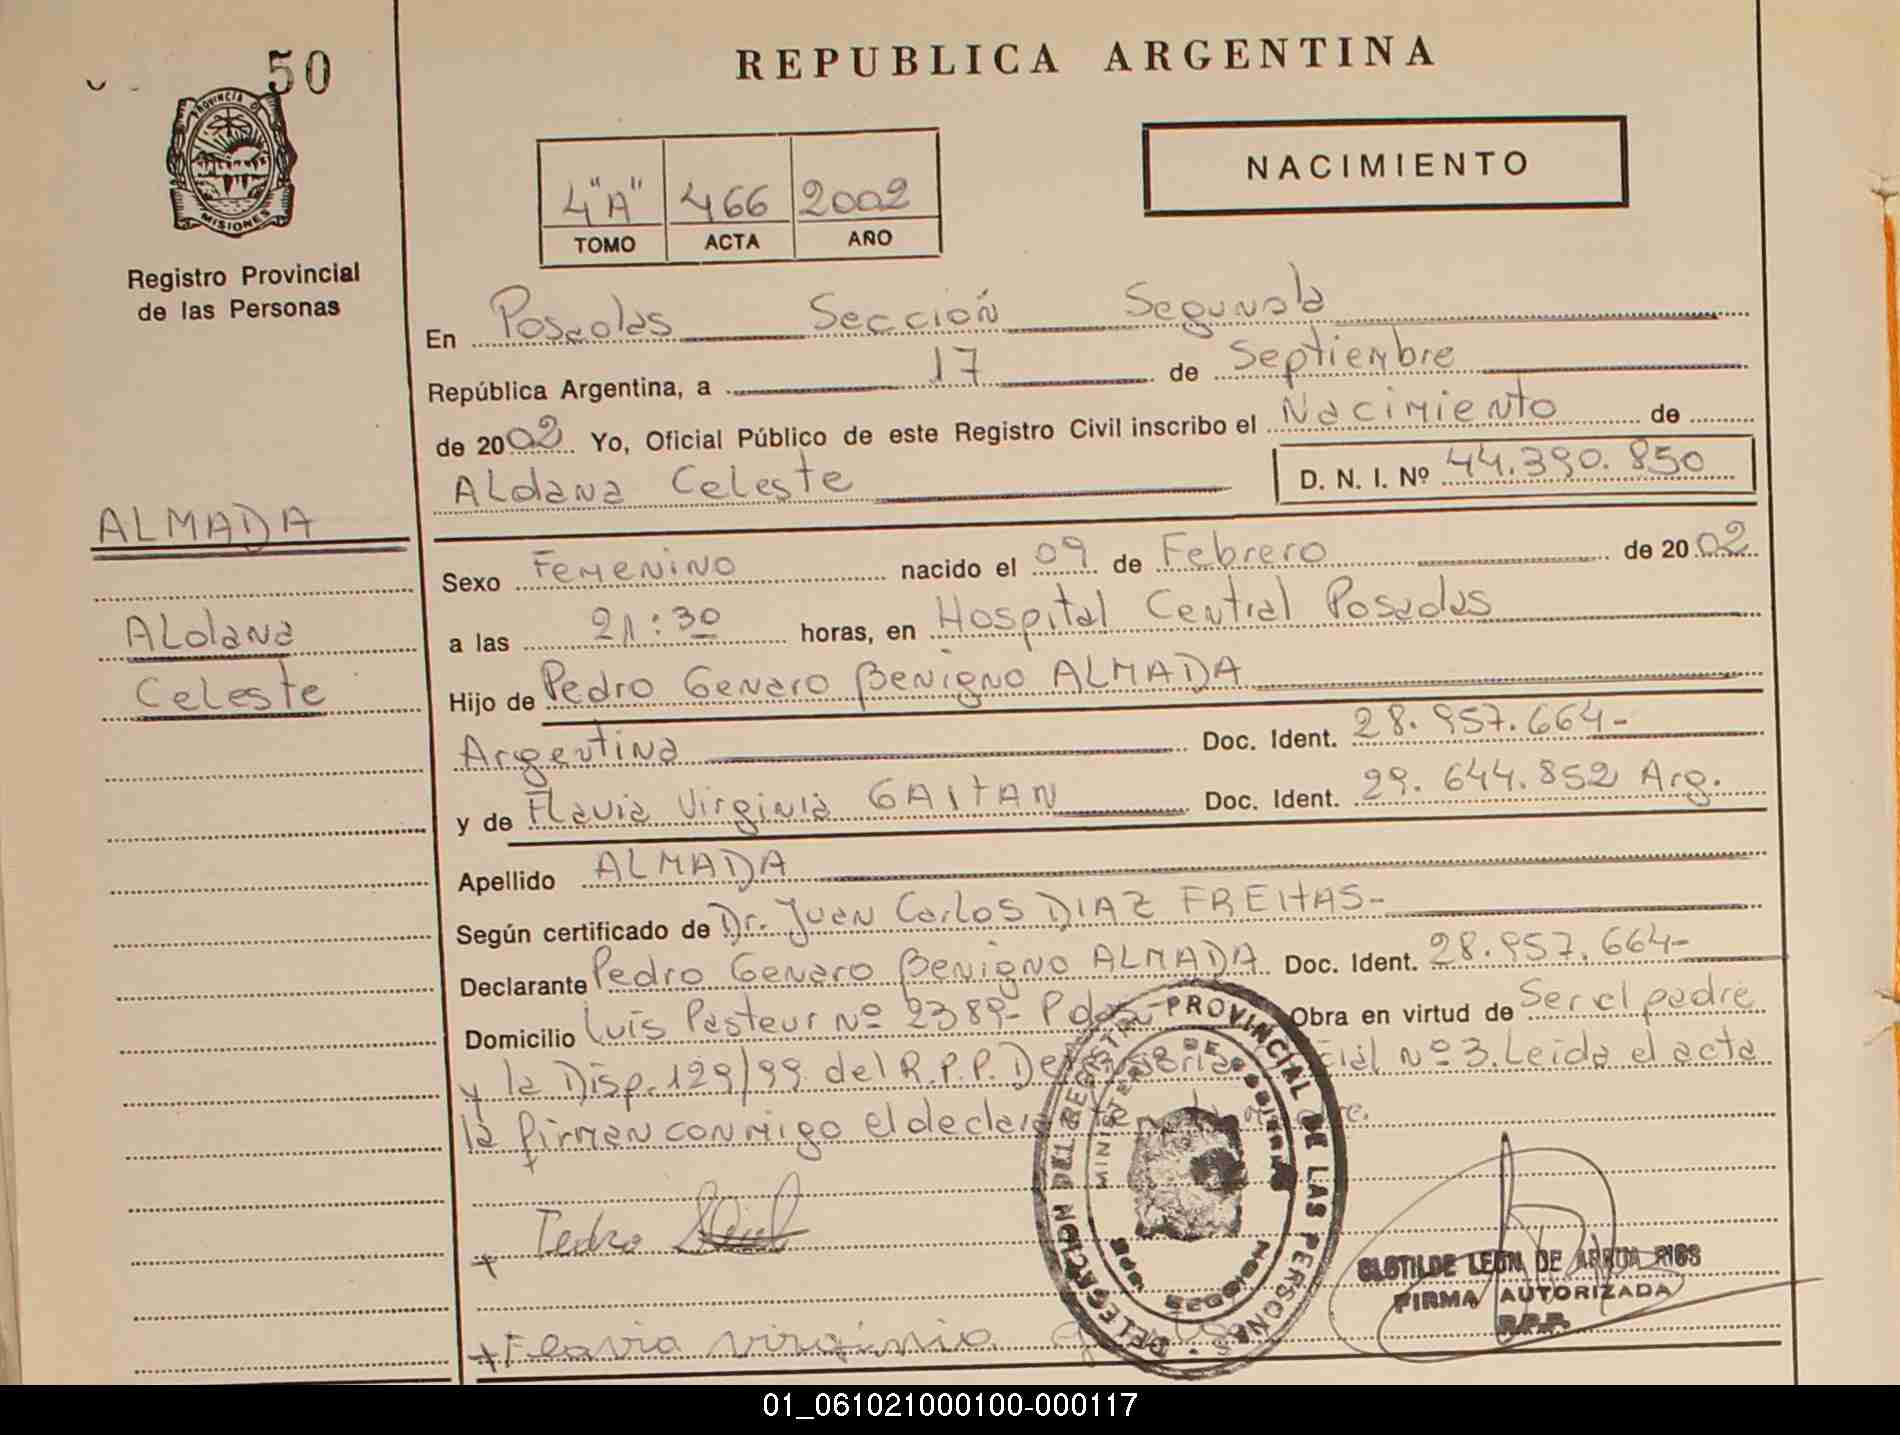 50
PROVINCIA DE
MISIONES
Registro Provincial
de las Personas
ALMADA
Aldana
Celeste
REPUBLICA ARGENTINA
4"A" 466 2002
TOMO ACTA AÑO
NACIMIENTO
En Posadas Sección Segunda
República Argentina, a 17 de Septiembre
de 2002 Yo, Oficial Público de este Registro Civil inscribo el Nacimiento de
Aldana Celeste D. N. I. Nº 44.390.850
Sexo Femenino nacido el 09 de Febrero de 2002
a las 21:30 horas, en Hospital Central Posadas
Hijo de Pedro Genaro Benigno ALMADA
Argentina Doc. Ident. 28.957.664-
y de Flavia Virginia GAITAN Doc. Ident. 29.644.852 Arg.
Apellido ALMADA
Según certificado de Dr. Juan Carlos DIAZ FREITAS-
Declarante Pedro Genaro Benigno ALMADA Doc. Ident. 28.957.664-
Domicilio Luis Pasteur Nº 2389- Pdas- Obra en virtud de Ser el padre
y la Disp. 129/99 del R.P.P. Nº 3. Leida el acta
la firman conmigo el
+ Pedro
+ Flavia virginia
DELEGACION DEL REGISTRO PROVINCIAL DE LAS PERSONAS
MINISTERIO DE GOBIERNO
POSADAS MISIONES
CLOTILDE LEON DE ARRUA RIOS
FIRMA AUTORIZADA
R.P.P.
01_061021000100-000117